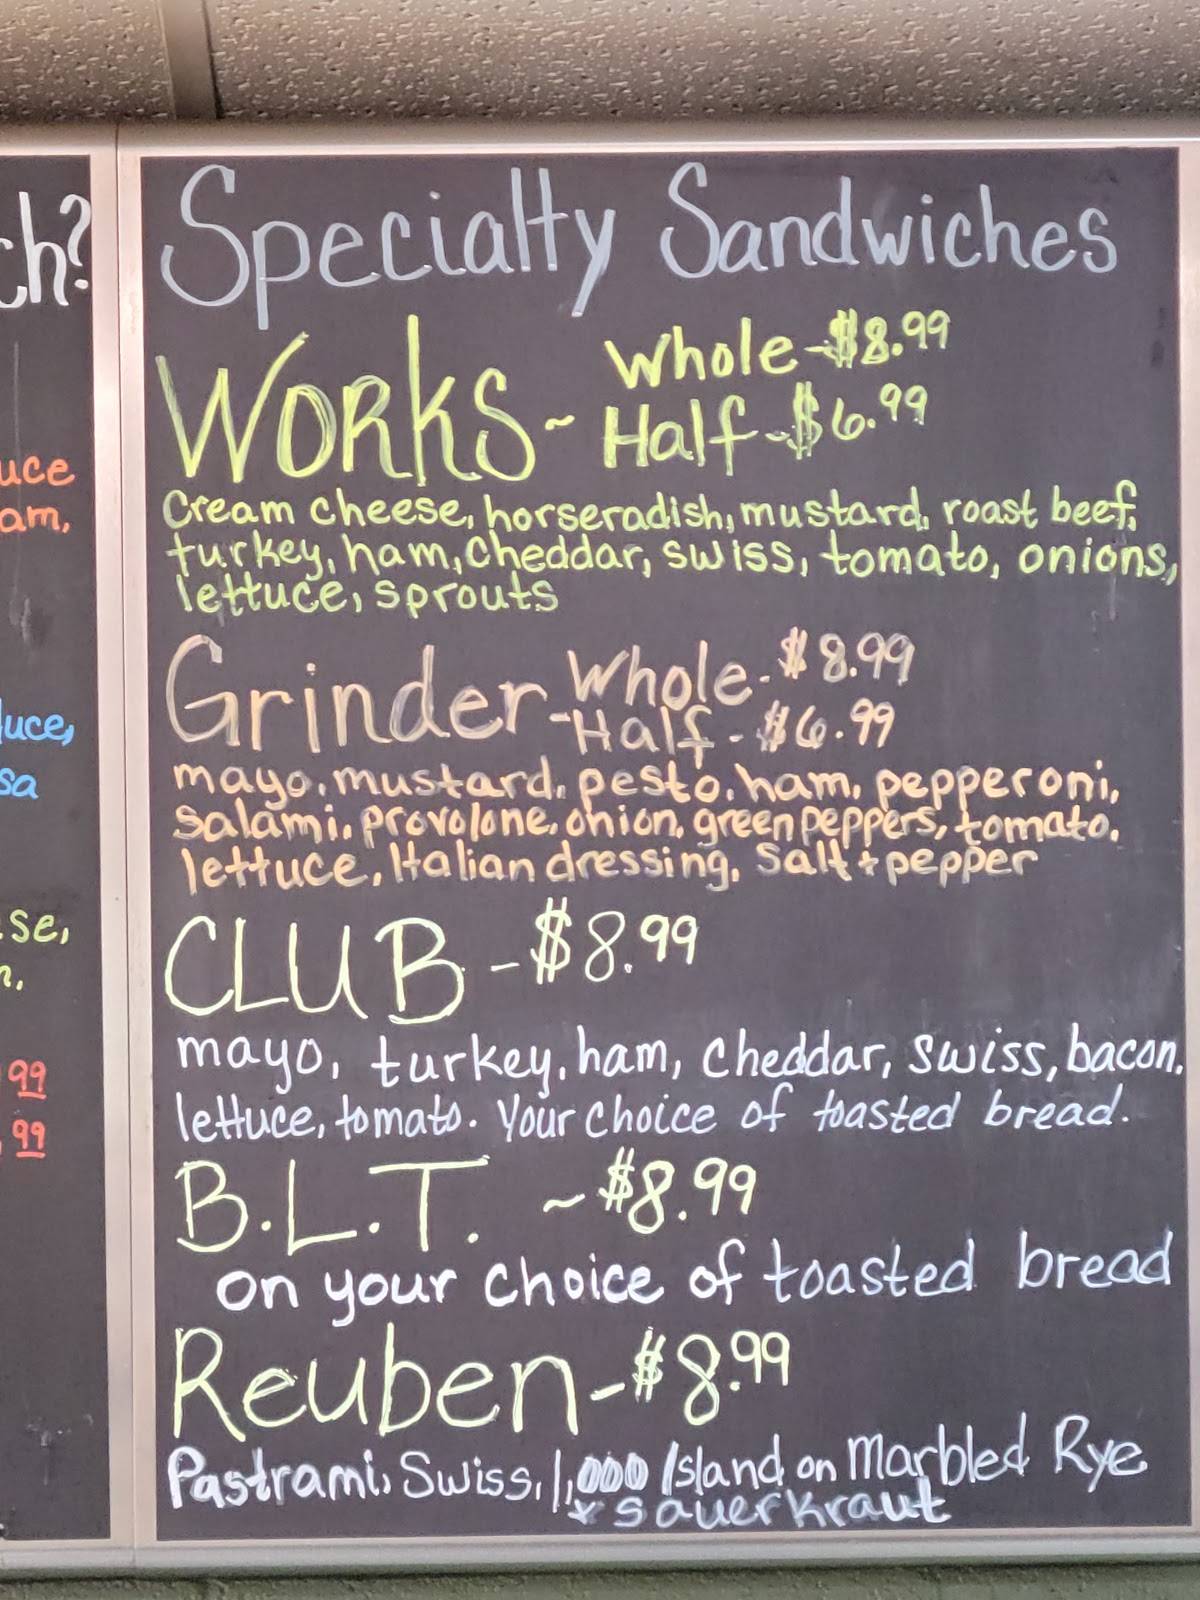 ch?
uce
am,
luce,
sa
se,
99
99
Specialty Sandwiches
Works~ Whole-$8.99
Half-$6.99
Cream cheese, horseradish, mustard, roast beef,
turkey, ham, cheddar, swiss, tomato, onions,
lettuce, sprouts
Grinder- Whole-$8.99
Half-$6.99
mayo, mustard, pesto, ham, pepperoni,
Salami, provolone, onion, green peppers, tomato,
lettuce, Italian dressing, Salt + pepper
CLUB-$8.99
mayo, turkey, ham, cheddar, swiss, bacon,
lettuce, tomato. Your choice of toasted bread.
B.L.T. ~$8.99
on your choice of toasted bread
Reuben-$8.99
Pastrami, Swiss, 1,000 Island on Marbled Rye
* sauerkraut